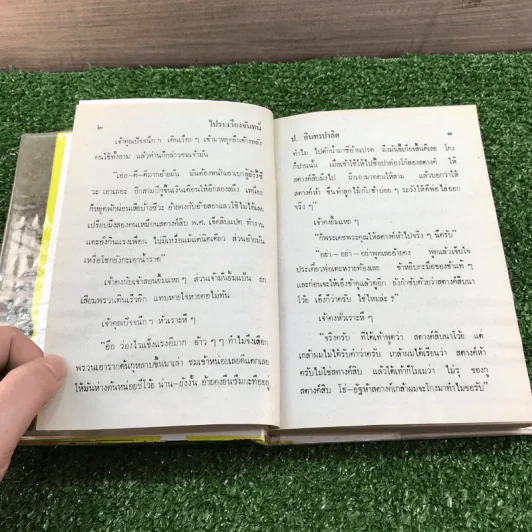 ๒ ไปรบเวียงจันทน์
เจ้าคุณปัจจนึก ฯ เดินเรื่อย ๆ เข้ามาหยุดยืนข้างหลัง
คนใช้ทั้งสาม แล้วท่านก็กล่าวชมเข้ามัน
ซิวะ เอาเถอะ อีกสามปีกูขึ้นเงินเดือนให้อีกสองสลึง เหนื่อย
ก็หยุดพักผ่อนเสียบ้างซีวะ อ้ายคงกับอ้ายสอนแล้วใช้ไม่ได้เลย
เปรียบมึงสองคนเหมือนสตางค์สิบ พ.ศ. เจ็ดสิบแปด ทำงาน
แต่ละอันกินแรงเพื่อน ไม่มีเหงื่อแม้แต่นิดเดียว ส่วนอ้ายมัน
เหงื่อโชกยังกะเอาน้ำราด"
เจ้าคงกับเจ้าสอนยิ้มแหย ๆ ส่วนเจ้ามันยิ้มแป้น ยก
เสียมพรวนดินเร็วอีก แทบหายใจหายคอไม่ทัน
เจ้าคุณปัจจนึก ฯ หัวเราะหึ ๆ
"อือ ว่องไวแข็งแรงดีมาก อ้าว ๆ ๆ ทำไมจึงเสือก
พรวนเอารากต้นกุหลาบขึ้นมาเล่า ชมเข้าหน่อยเลยดีแตกเลย
ให้มันห่างต้นหน่อยซีโว้ย น่าน-ยังงั้น อ้ายคงยืนซึมกะทือ​อยู่
ป. อินทรปาลิต ๓
ทำไม ไปตักน้ำมาซีอ้ายเปรต
ก็ปานนั้น เมื่อเช้าใช้ให้ไปซื้อปาท่องโก๋สองสตางค์ ให้
สตางค์สิบมึงไป มึงเอามาทอนให้สาม แล้วบอกว่าให้
สตางค์ห้า
จริง ๆ"
เจ้าคงยิ้มแหย ๆ
"ก็พระเดชพระคุณให้สตางค์ห้าไปจริง ๆ นี่ครับ"
"อย่า - อย่า - อย่าพูดเลยอ้ายคง พูดแล้วเจ็บใจ
ประเดี๋ยวพ่อเตะหงายท้องเลย ข้าหยิบกะมือของข้าแท้ ๆ
และก่อนจะให้เอ็งข้าดูแล้วดูอีก ยังกำชับด้วยว่าสตางค์สิบนา
โว้ย เอ็งก็ว่าครับ ใช่ไหมล่ะ ?"
เจ้าคงหัวเราะหึ ๆ
"จริงครับ ที่ใต้เท้าพูดว่า สตางค์สิบนาโว้ย แต่
เกล้าผมไม่ได้รับคำว่าครับ เกล้าผมได้เรียนว่า สตางค์ห้า
ครับไม่ใช่สตางค์สิบ แล้วใต้เท้าก็โมเมว่า ไม่รู้ ของกู
สตางค์สิบ โธ่-อัฐห้าสตางค์เกล้าผมจะโกงมาทำไมขอรับ"